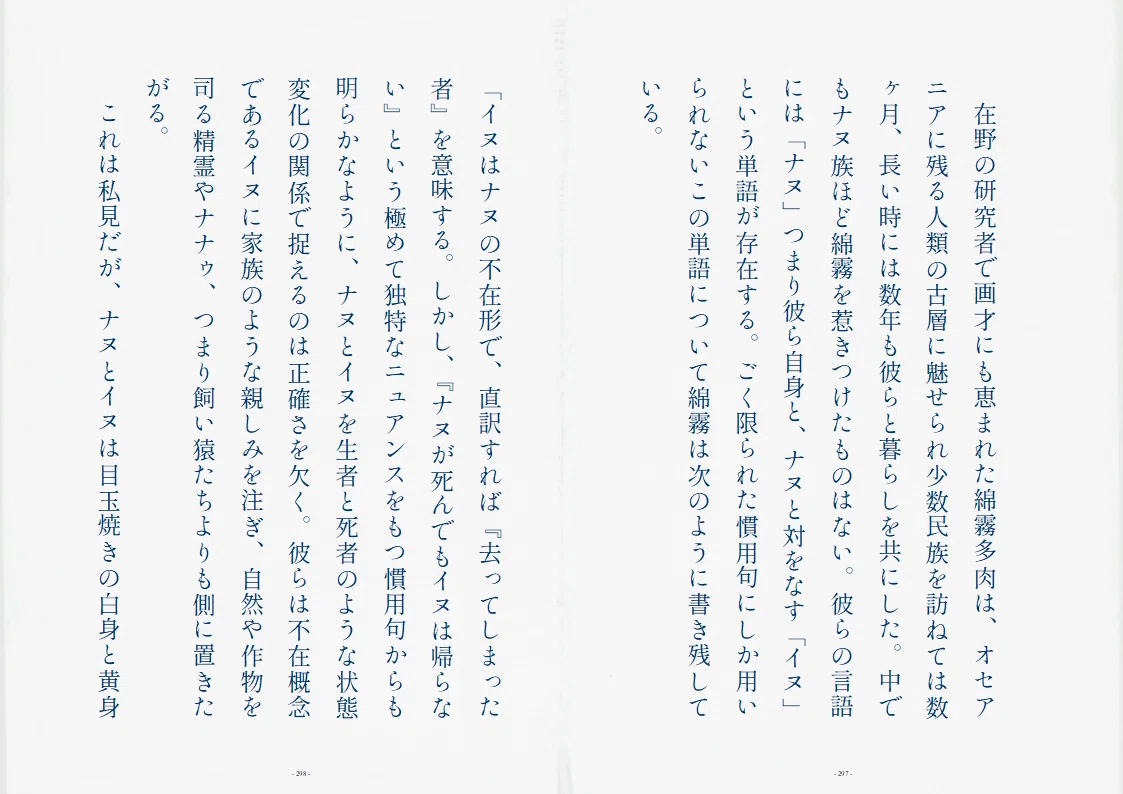 在野の研究者で画才にも恵まれた綿霧多肉は、オセア
ニアに残る人類の古層に魅せられ少数民族を訪ねては数
ヶ月、長い時には数年も彼らと暮らしを共にした。中で
もナヌ族ほど綿霧を惹きつけたものはない。彼らの言語
には「ナヌ」つまり彼ら自身と、ナヌと対をなす「イヌ」
という単語が存在する。ごく限られた慣用句にしか用い
られないこの単語について綿霧は次のように書き残して
いる。
- 297 -
「イヌはナヌの不在形で、直訳すれば『去ってしまった
者』を意味する。しかし、『ナヌが死んでもイヌは帰らな
い』という極めて独特なニュアンスをもつ慣用句からも
明らかなように、ナヌとイヌを生者と死者のような状態
変化の関係で捉えるのは正確さを欠く。彼らは不在概念
であるイヌに家族のような親しみを注ぎ、自然や作物を
司る精霊やナナゥ、つまり飼い猿たちよりも側に置きた
がる。
これは私見だが、ナヌとイヌは目玉焼きの白身と黄身
- 298 -